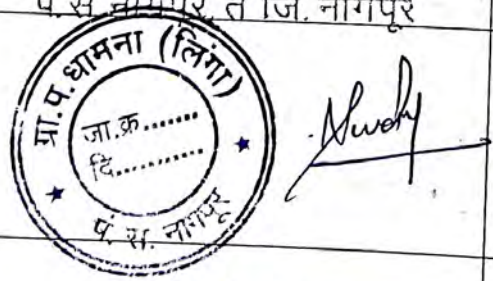 पं.स. नागपूर, त. जि. नागपूर
ग्रा.प. धामना (लिंगा)
जा.क्र.........
दि...........
पं. स. नागपूर